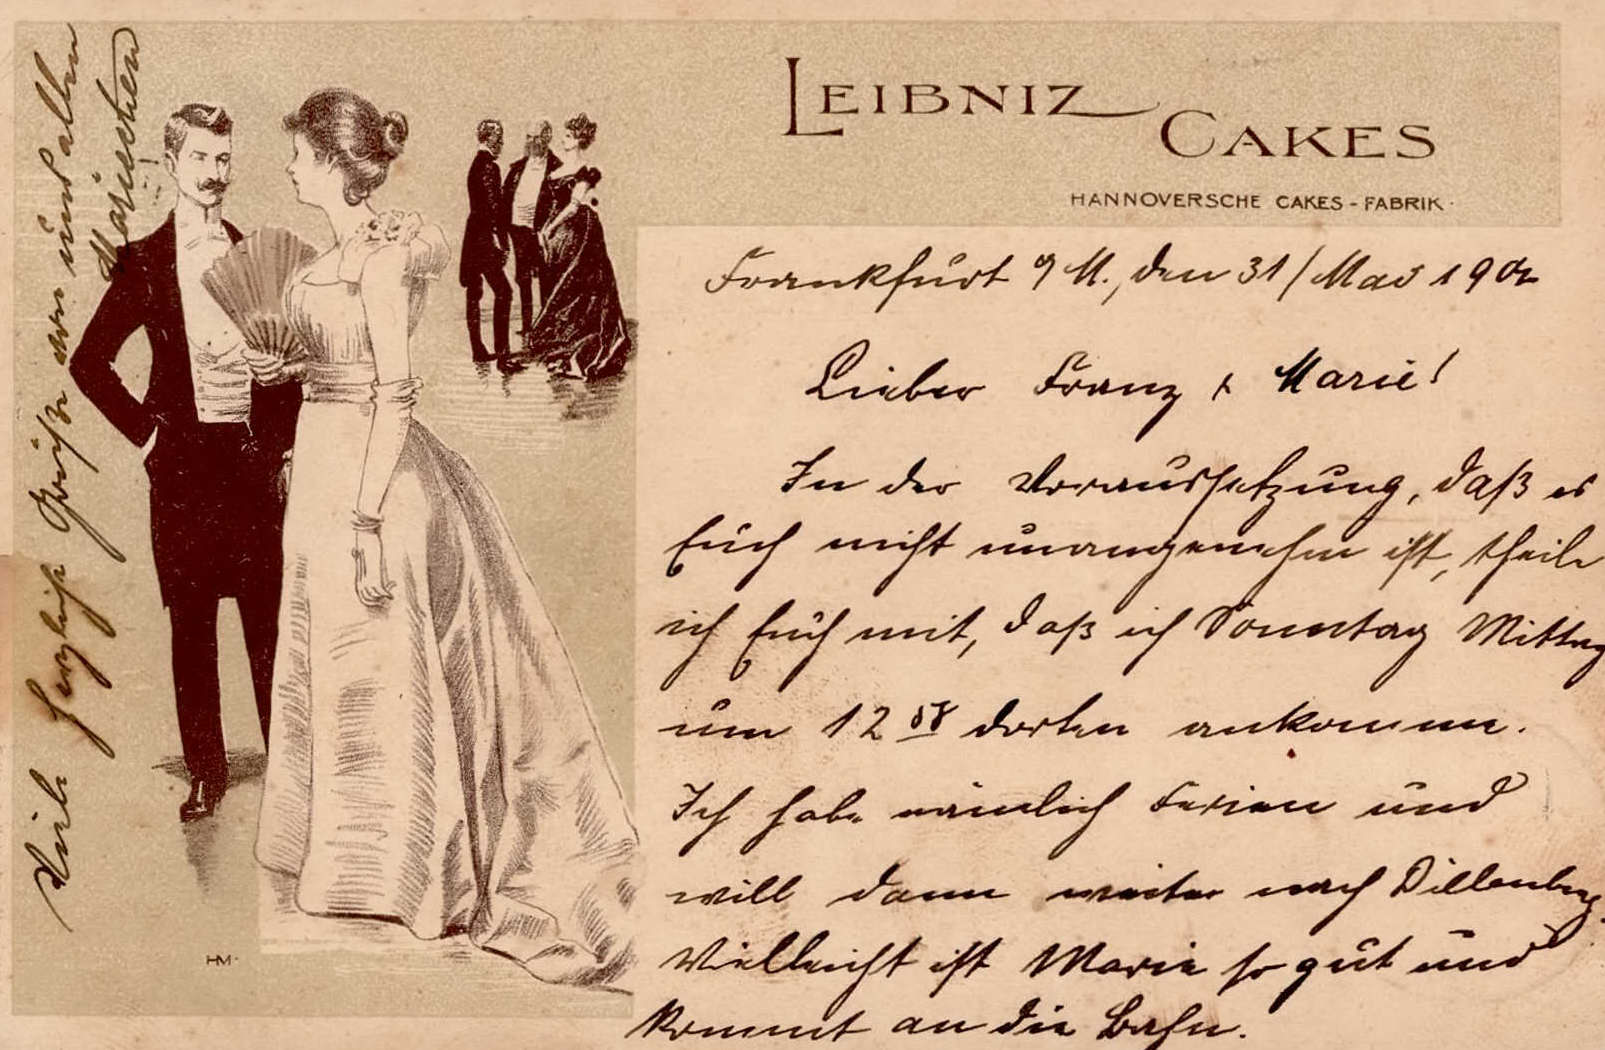 LEIBNIZ
CAKES
HANNOVERSCHE CAKES-FABRIK.
Frankfurt a/M., den 31/Mai 190
Lieber Franz & Marie!
In der Voraussetzung, daß es
Euch nicht unangenehm ist, theile
ich Euch mit, daß ich Sonntag Mittag
um 12 58 dorten ankomme.
Ich habe nämlich Ferien und
will dann weiter nach Dillenburg.
Vielleicht ist Marie so gut und
kommt an die Bahn.
Viele herzliche Grüße von und allen
Mariechen
HM.